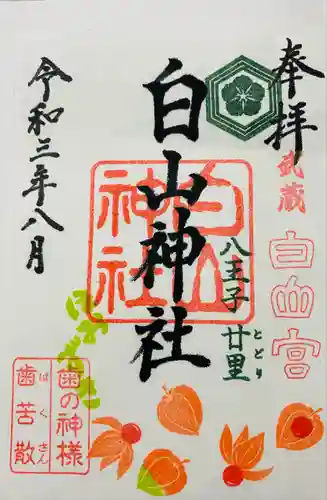 奉拝
武蔵
白山宮
白山神社
白山
神社
八王子 廿里
とどり
令和三年八月
歯の神様
歯苦散
はくさん